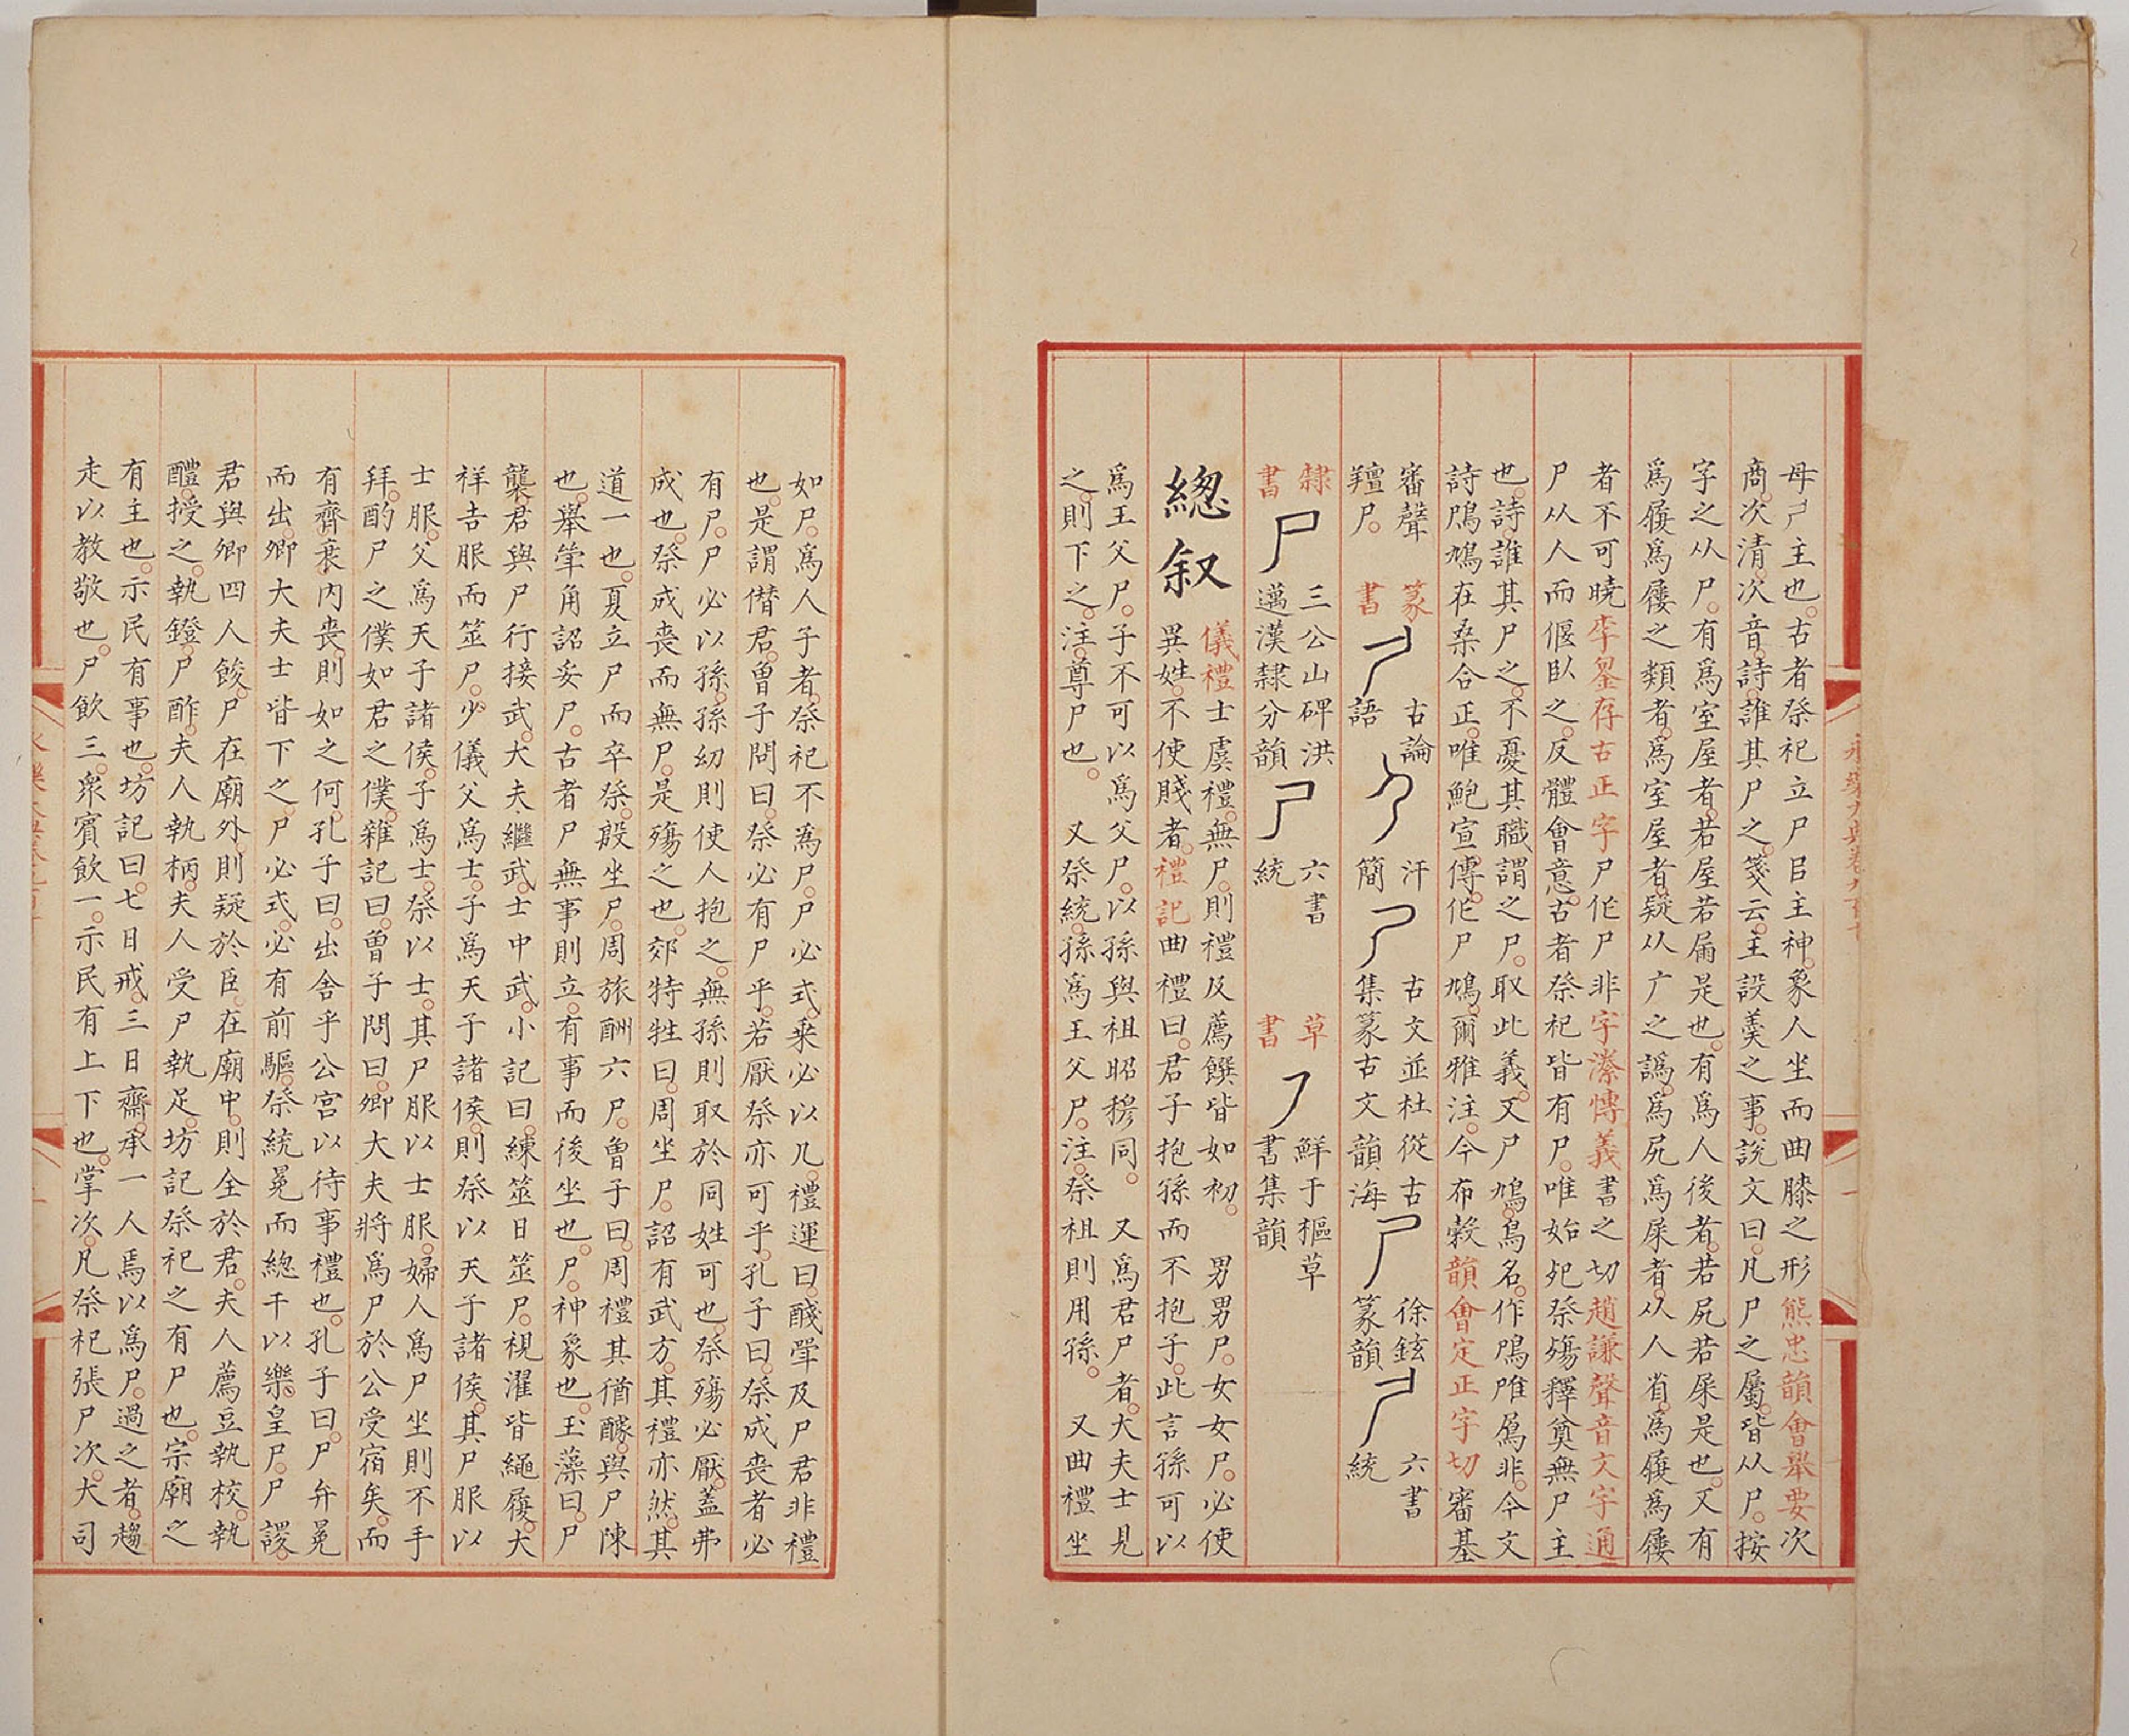 母尸主也。古者祭祀立尸㠯主神。象人坐而曲膝之形熊忠韻會舉要次
商。次清次音。詩誰其尸之。箋云。主設羹之事。說文曰。凡尸之屬。皆从尸。按
字之从尸。有爲室屋者。若屋若屚是也。有爲人後者。若尻若屎是也。又有
爲履爲屨之類者。爲室屋者。疑从广之譌。爲尻爲屎者。从人省。爲履爲屨
者不可曉李鋆存古正字尸作尸非字潫博義書之切趙謙聲音文字通
尸从人而偃臥之。反體會意。古者祭祀皆有尸。唯始死祭殤釋奠無尸主
也。詩誰其尸之。不憂其職謂之尸。取此義。又尸鳩鳥名。作鳲鳫非。今文
詩鳲鳩在桑合正。唯鮑宣傳。作尸鳩。爾雅注。今布穀韻會定正字切審基
審聲羶尸。 篆書 古論語 汗簡 古文並杜從古集篆古文韻海 徐鉉篆韻 六書統
隸書 尸 三公山碑洪邁漢隸分韻 尸 六書統 草書 鮮于樞草書集韻
總叙
儀禮士虞禮。無尸。則禮及薦饌皆如初。 男男尸。女女尸。必使
異姓。不使賤者。禮記曲禮曰。君子抱孫而不抱子。此言孫可以
爲王父尸。子不可以爲父尸。以孫與祖昭穆同。 又爲君尸者。大夫士見
之。則下之。注。尊尸也。 又祭統。孫爲王父尸。注。祭祖則用孫。 又曲禮坐
永樂大典卷九百十
如尸。爲人子者。祭祀不爲尸。尸必式。乘必以几。禮運曰。醆斝及尸君非禮
也。是謂僭君。曾子問曰。祭必有尸乎。若厭祭亦可乎。孔子曰。祭成喪者必
有尸。尸必以孫。孫幼則使人抱之。無孫則取於同姓可也。祭殤必厭。蓋弗
成也。祭成喪而無尸。是殤之也。郊特牲曰。周坐尸。詔有武方。其禮亦然。其
道一也。夏立尸而卒祭。殷坐尸。周旅酬六尸。曾子曰。周禮其猶醵。與尸陳
也。舉斝角詔妥尸。古者尸無事則立。有事而後坐也。尸。神象也。玉藻曰。尸
襲。君與尸行接武。大夫繼武。士中武。小記曰。練筮日筮尸。視濯皆繩屨。大
祥吉服而筮尸。少儀父爲士。子爲天子諸侯。則祭以天子諸侯。其尸服以
士服。父爲天子諸侯。子爲士。祭以士。其尸服以士服。婦人爲尸坐則不手
拜。酌尸之僕如君之僕。雜記曰。曾子問曰。卿大夫將爲尸於公受宿矣。而
有齊衰內喪。則如之何。孔子曰。出舍乎公宮以待事禮也。孔子曰。尸弁冕
而出。卿大夫士皆下之。尸必式。必有前驅。祭統冕而總干以樂。皇尸。尸謖。
君與卿四人餕。尸在廟外。則疑於臣。在廟中。則全於君。夫人薦豆執校。執
醴。授之。執鐙。尸酢。夫人執柄。夫人受尸執足。坊記祭祀之有尸也。宗廟之
有主也。示民有事也。坊記曰。七日戒。三日齋。承一人焉以爲尸。過之者。趨
走以教敬也。尸飲三。衆賓飲一。示民有上下也。掌次。凡祭祀張尸次。犬司